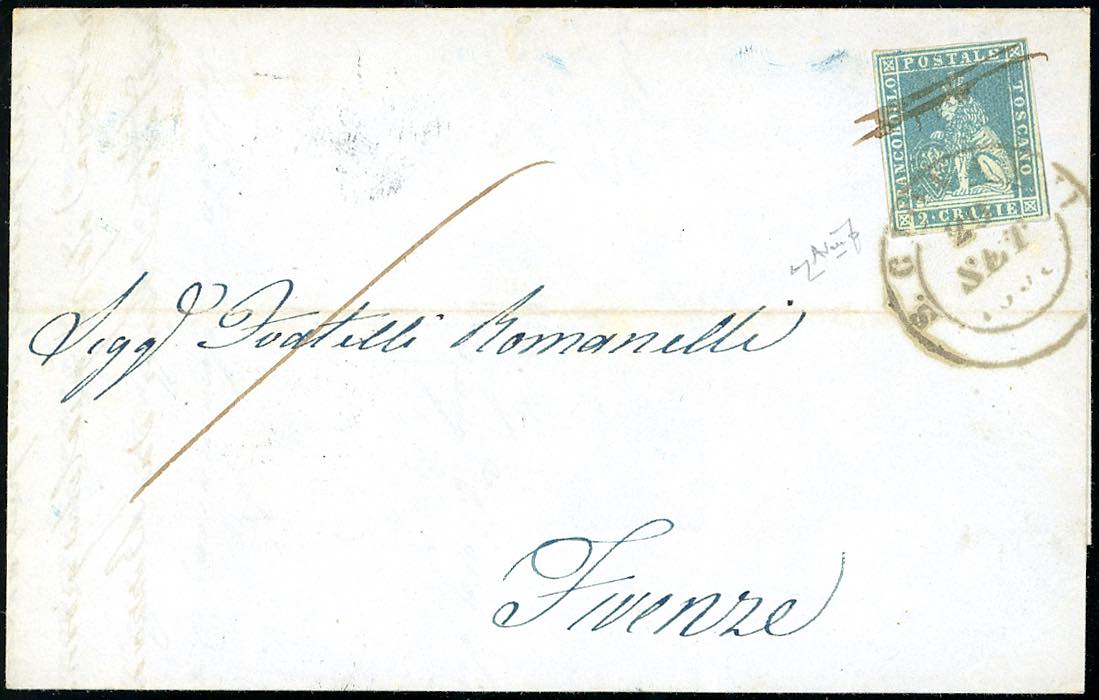 FRANCOBOLLO POSTALE TOSCANO
2·CRAZIE
SET
Sigg.i Fratelli Romanelli
Firenze